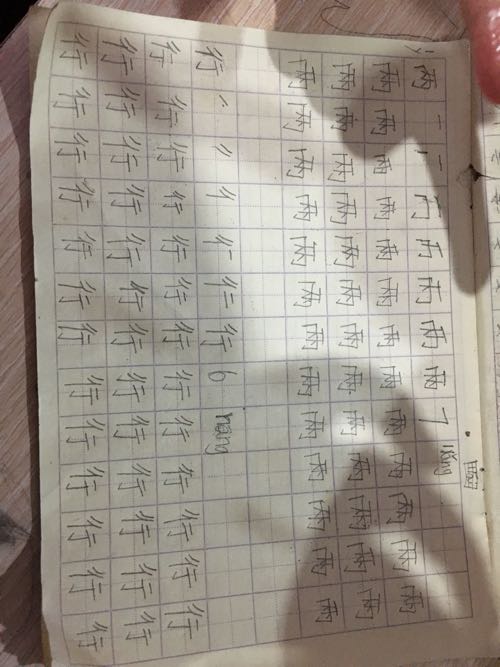 两 一 两 7 liang
两 两 两 两 两 两 两 两 两 两 两 两 两
两 两 两 两 两 两 两 两 两 两 两 两 两
两 两 两 两 两 两 两 两 两 两 两 两 两
行 彳 行 6 hang
行 行 行 行 行 行 行 行 行 行 行 行 行
行 行 行 行 行 行 行 行 行 行 行 行 行
行 行 行 行 行 行 行 行 行 行 行 行 行